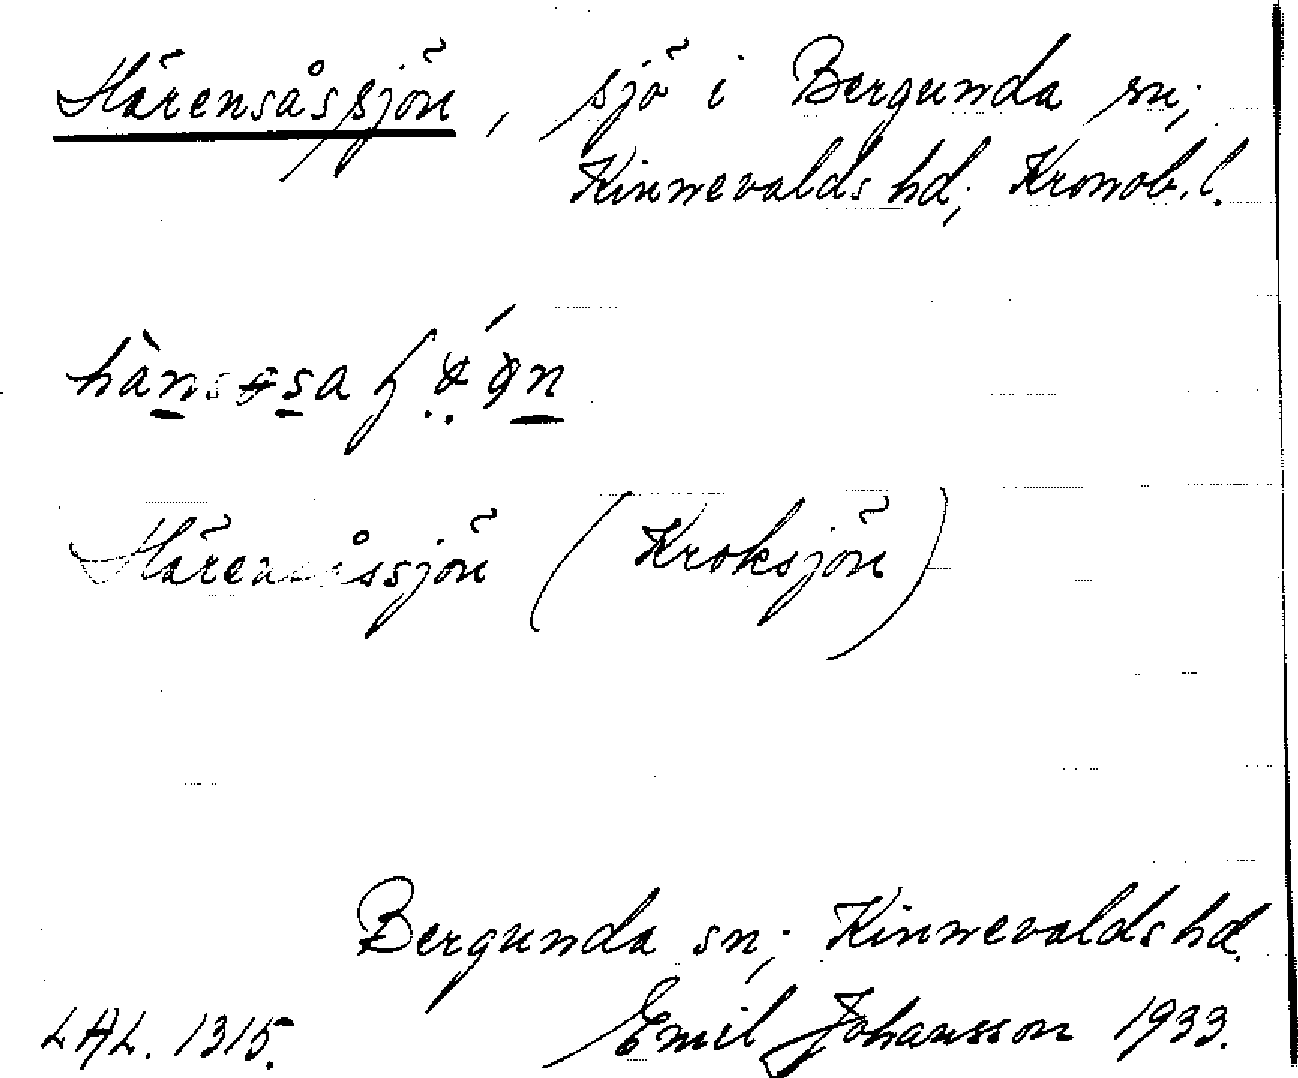 Härensåssjön, sjö i Bergunda sn;
Kinnevalds hd; Kronob. l.
Härensåssjön (Kroksjön)
Bergunda sn; Kinnevalds hd.
LAL. 1315. Emil Johansson 1933.